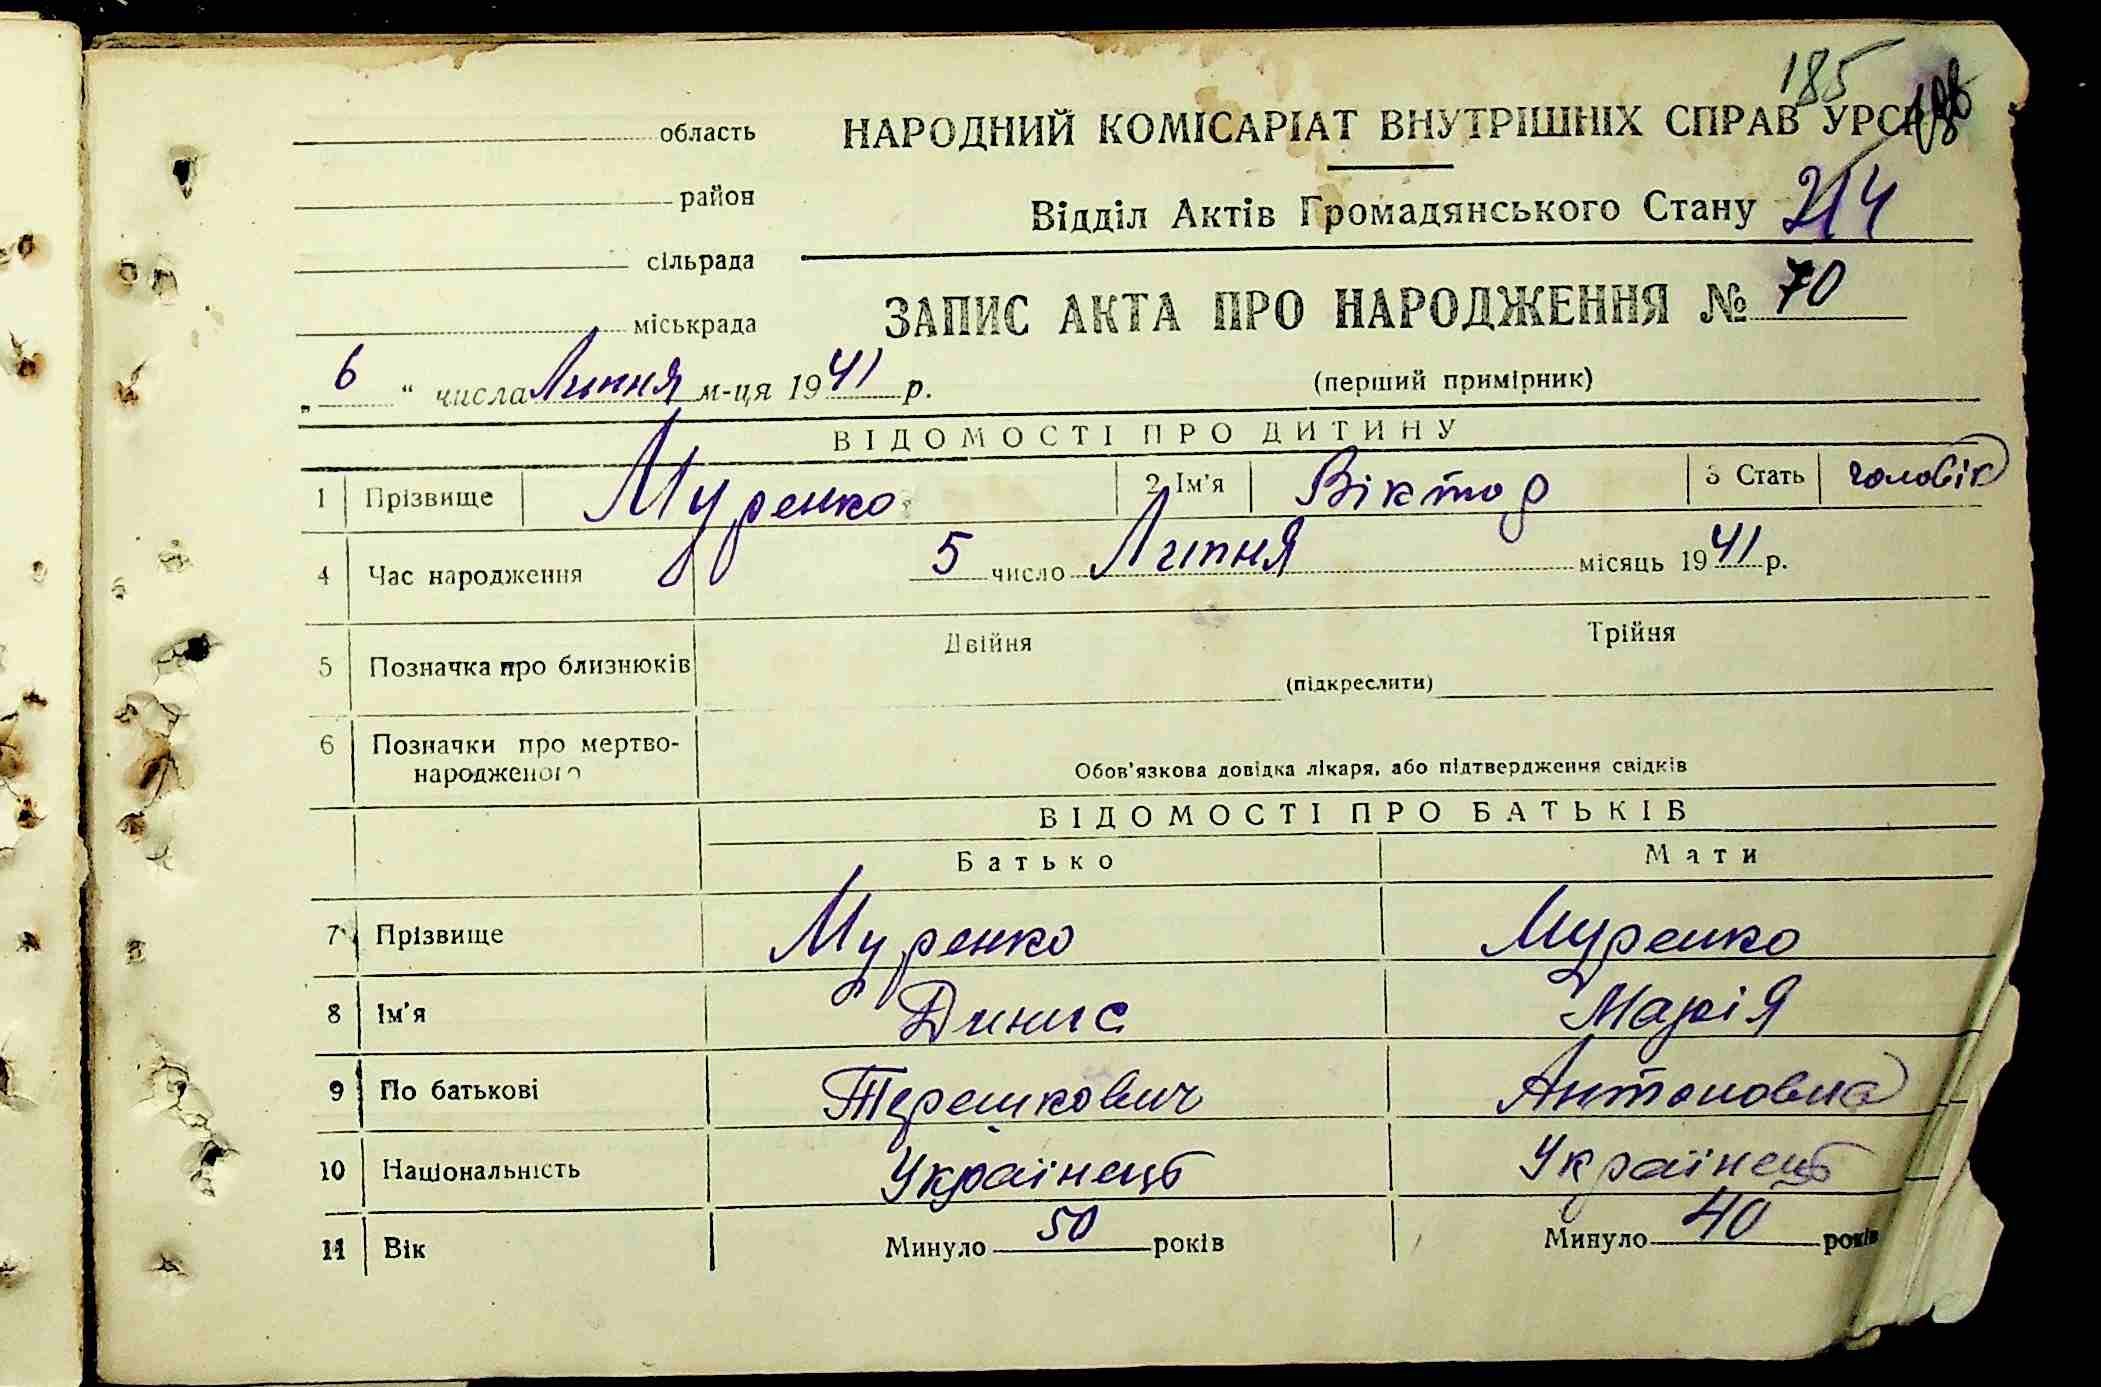 185
область
НАРОДНИЙ КОМІСАРІАТ ВНУТРІШНІХ СПРАВ УРСР
район
Відділ Актів Громадянського Стану 214
сільрада
міськрада
ЗАПИС АКТА ПРО НАРОДЖЕННЯ № 70
„ 6 “ числа Липня м-ця 1941 р.
(перший примірник)
ВІДОМОСТІ ПРО ДИТИНУ
1 Прізвище Муренко 2 Ім'я Віктор 3 Стать чоловік
4 Час народження 5 число Липня місяць 1941 р.
5 Позначка про близнюків Двійня Трійня
(підкреслити)
6 Позначки про мертво-
народженого
Обов'язкова довідка лікаря, або підтвердження свідків
ВІДОМОСТІ ПРО БАТЬКІВ
Батько Мати
7 Прізвище Муренко Муренко
8 Ім'я Динис Марія
9 По батькові Терешкович Антоновна
10 Національність Українець Українець
11 Вік Минуло 50 років Минуло 40 років